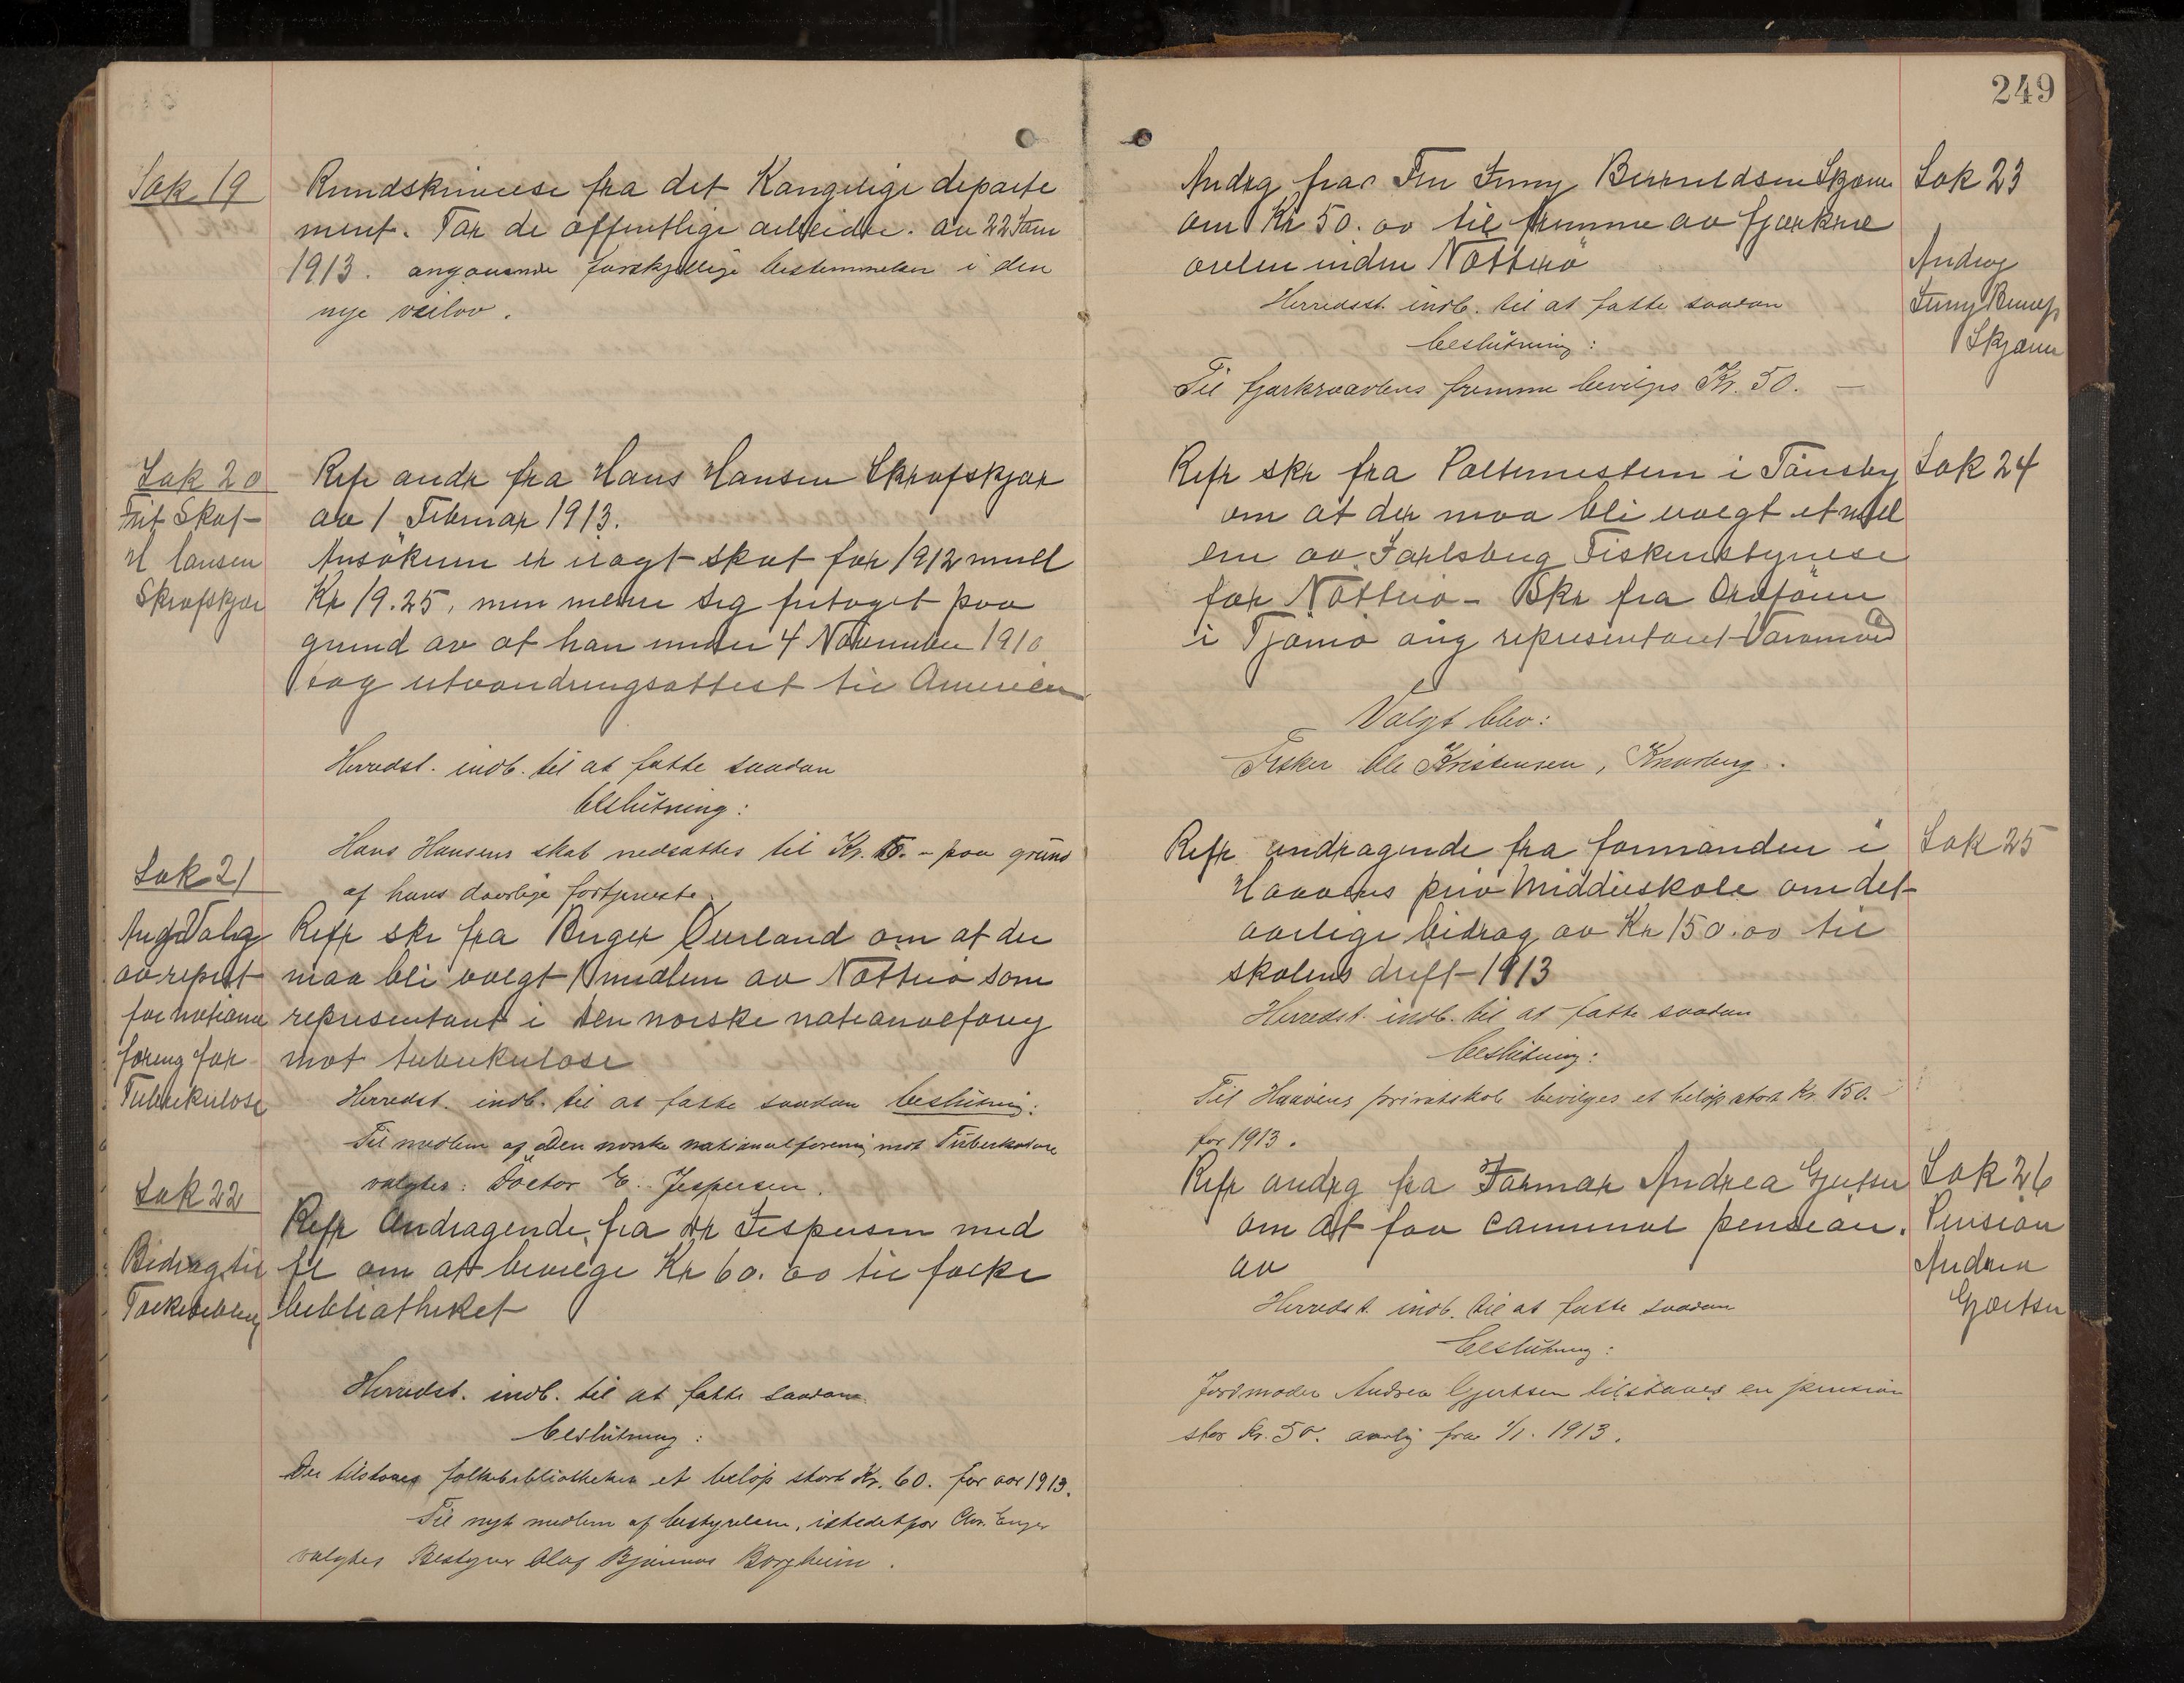 249
Sak 19
Rundskrivelse fra det Kongelige departe
ment. For de offentlige arbeider. av 22 Jan
1913. angaaende forskjellige bestemmelser i den
nye veilov.
Sak 20
Frit Skat-
H Hansen
Skrofskjær
Refr andr fra Hans Hansen Skrofskjær
av 1 Februar 1913.
Ansökeren er ilagt skat for 1912 med
Kr 19.25, men mener sig fritaget paa
grund av at han under 4 November 1910
tog utvandringsattest til Amerika
Herredst. indb. til at fatte saadan
beslutning:
Hans Hansens skat nedsættes til Kr. - paa grund
af hans daarlige fortjeneste.
Sak 21
Ang Valg
av reprst
for nationa
foreng for
Tuberkulose
Refr skr fra Birger Øverland om at der
maa bli valgt 1 medlem av Nøtterö som
representant i Den norske nationalforng
mot tuberkulose
Herredst. indb. til at fatte saadan beslutning:
Til medlem af Den norske nationalforening mot Tuberkulose
valgtes: Doctor E. Jespersen.
Sak 22
Bidrag til
Folkebibliog
Refr Andragende fra dr Jespersen med
fl om at bevilge Kr 60.00 til folke
bibliotheket
Herredst. indb. til at fatte saadan
beslutning:
Der tilstaaes folkebibliotheket et beløp stort Kr. 60. for aar 1913.
Til nyt medlem af bestyrelsen, istedetfor Chr. Enger
valgtes Bestyrer Olaf Bjønnes Borgheim.
Andrg fra Fru Jenny Berntsldsen Skjærn
om Kr 50.00 til fremme av fjærkræ
avlen inden Nøtterö
Herredsst. indb. til at fatte saadan
beslutning:
Til fjærkræavlens fremme bevilges Kr. 50. —
Sak 23
Andrag
Jenny
Refr skr fra Poltimesteren i Tönsby
om at der maa bli valgt et med
lem av Jarlsberg Fiskeristyrelse
for Nøtterö - Skr fra Ordföreren
i Tjömö ang representant Varamand
Valgt blev:
Fisker Ole Kristensen, Knarberg.
Sak 24
Refr andragende fra formanden i
Haavens priv Middelskole om det
aarlige bidrag av Kr 150.00 til
skolens drift 1913
Herredst. indb. til at fatte saadan
beslutning:
Til Haavens privatskole bevilges et beløp stort Kr. 150.-
for 1913.
Sak 25
Refr andrg fra Jormor Andrea Gjertsen
om at faa comunal pension.
av
Herredst. indb. til at fatte saadan
beslutning:
Jordmoder Andrea Gjertsen tilstaaes en pension
stor Kr. 50. aarlig fra 1/1. 1913.
Sak 26
Pension
Andrea
Gjertsen